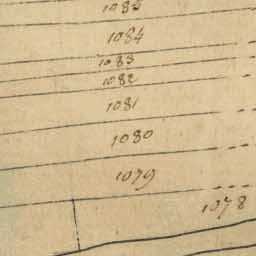 1085
1084
1083
1082
1081
1080
1079
1078